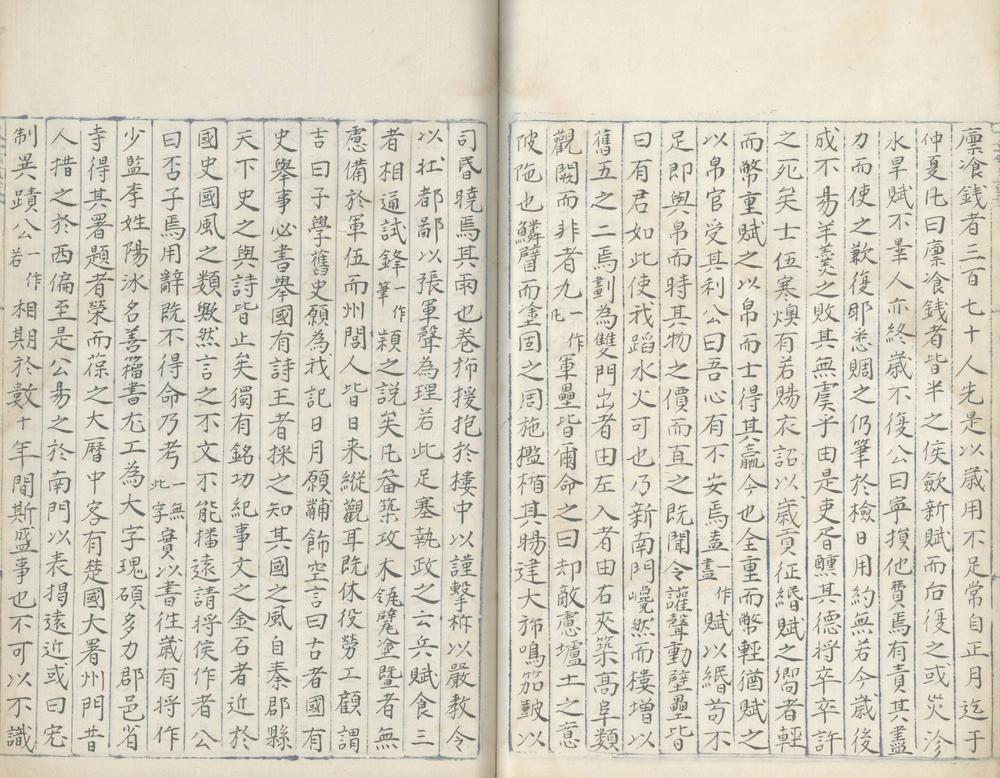 廪飡錢者三百七十人先是以歳用不足常自正月迄于
仲夏凡曰廪飡錢者皆半之俟斂新賦而后復之或災沴
水旱賦不畢人亦終歳不復公曰寧損他費焉有責其盡
力而使之歉復耶悉賙之仍筆於檢日用約無若今歳後
成不昜羊羮之敗其無虞乎由是吏胥醺其德将卒卒許
之死矣士伍寒燠有若賜衣詔以歳貢征緡賦之嚮者輕
而幣重賦之以帛而士得其贏今也全重而幣輕猶賦之
以帛官受其利公曰吾心有不安焉盖一作盡賦以緡苟不
足即輿帛而時其物之價而直之既聞令讙聲動壁壘皆
曰有君如此使我蹈水火可也乃新南門巙然而樓増以
舊五之二焉劃為雙門出者由左入者由右夾築高阜類
觀闕而非者九一作凡軍壘皆爾命之曰却敵慮壚土之意
陂陁也鱗甓而塗固之周施檻楯其晹建大斾鳴笳皷以
司昏曉焉其雨也卷斾援抱於樓中以謹擊柝以嚴教令
以壮都鄙以張軍聲為理若此足塞執政之云兵賦食三
者相通試鋒一作筆穎之説矣凡畚築攻木瓴甓塗墍者無
慮備於軍伍而州閭人皆日来縦觀耳既休役勞工顧謂
吉曰子學舊史願為我記日月願黼飾空言曰古者國有
史舉事必書舉國有詩王者採之知其國之風自秦郡縣
天下史之與詩皆止矣獨有銘功紀事文之金石者近於
國史國風之類歟然言之不文不能播遠請将俟作者公
曰否子焉用辭既不得命乃考一無此字實以書徃歳有将作
少監李姓陽冰名善籀書尤工為大字瑰碩多力郡邑省
寺得其署題者榮而葆之大暦中客有楚國大署州門昔
人措之於西偏至是公昜之於南門以表揭遠近或曰宏
制異蹟公一作若相期於數十年間斯盛事也不可以不識